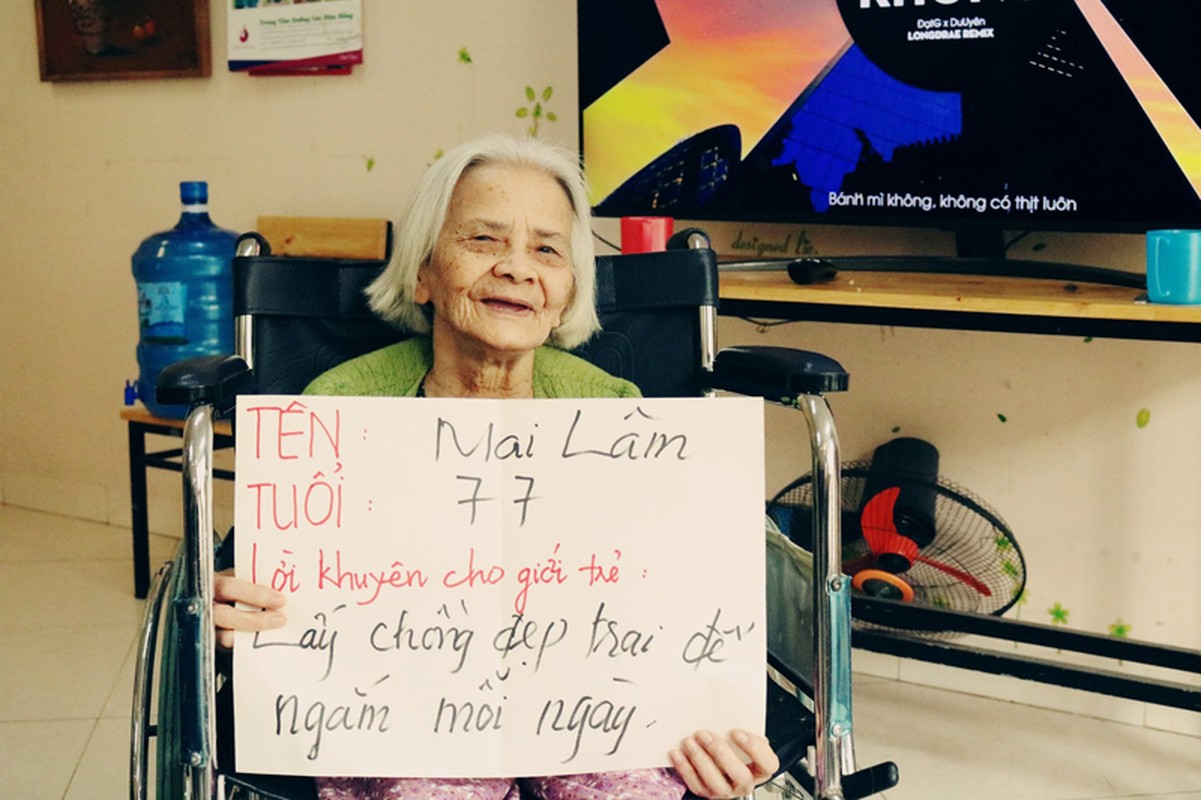 Trung Tâm Dưỡng Lão Diên Hồng
ĐạtG x DuUyên
LONGDRAE REMIX
Bánh mì không, không có thịt luôn
TÊN : Mai Lâm
TUỔI : 77
Lời khuyên cho giới trẻ :
Lấy chồng đẹp trai để
ngắm mỗi ngày.